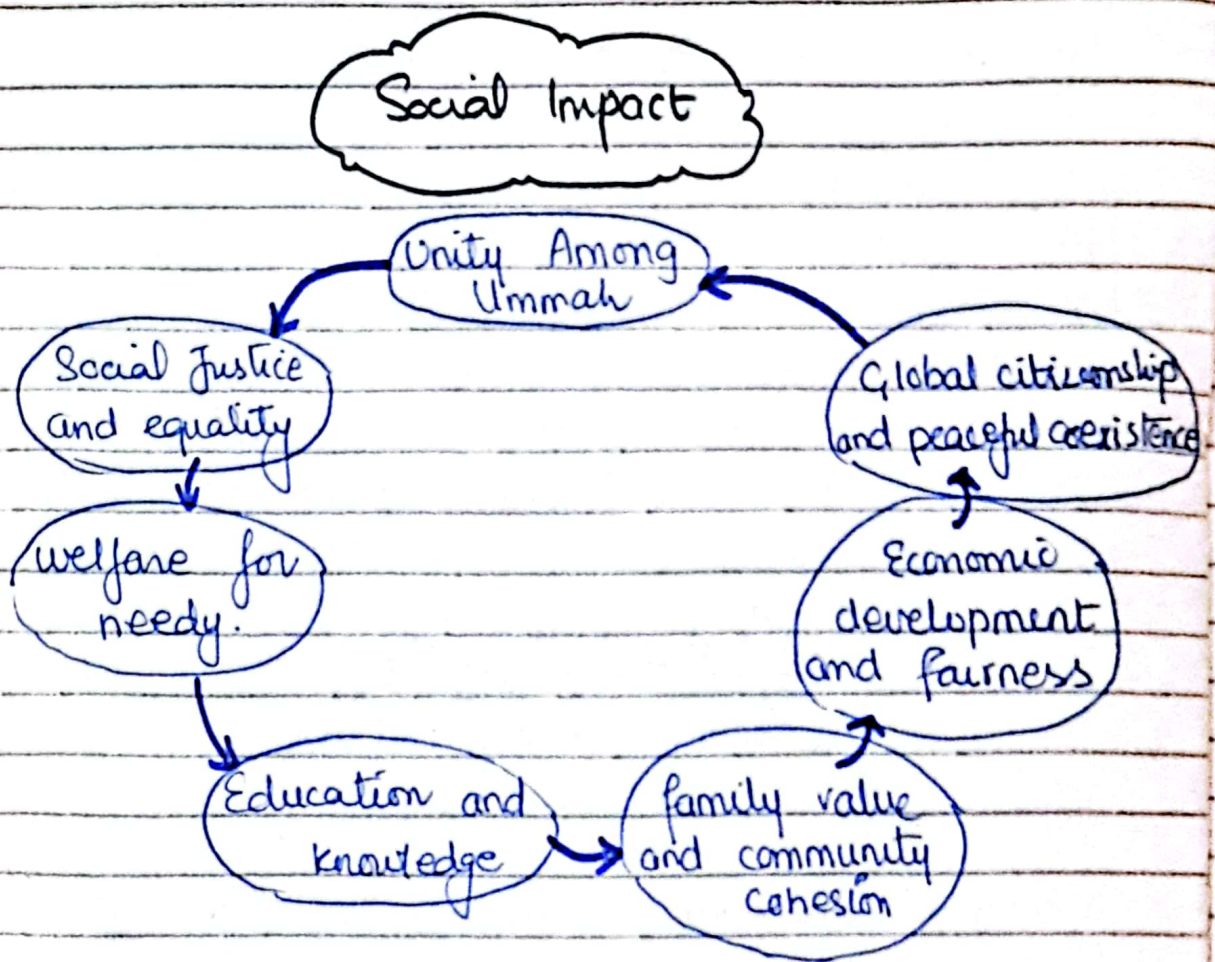 Social Impact
Unity Among
Ummah
Social Justice
and equality
welfare for
needy.
Education and
knowledge
family value
and community
cohesion
Economic
development
and fairness
Global citizenship
and peaceful coexistence